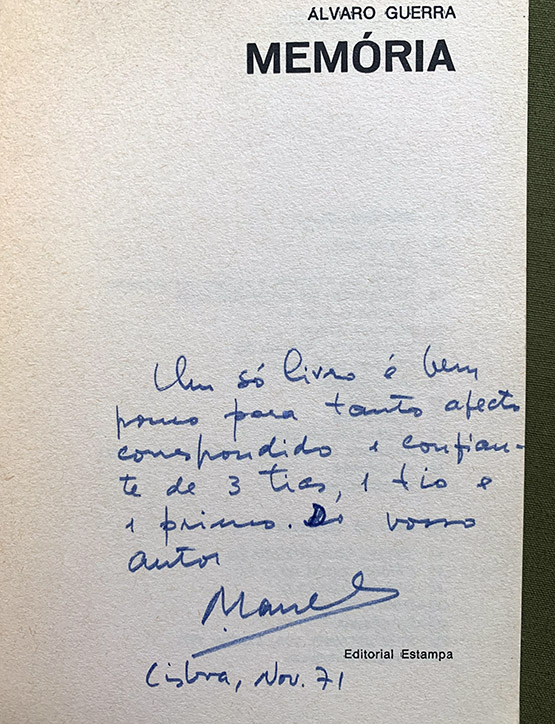 ÁLVARO GUERRA
MEMÓRIA
Um só livro é bem
pouco para tanto afecto
correspondido e confian-
te de 3 tias, 1 tio e
1 primo. Do vosso
autor
Manuel
Editorial Estampa
Lisboa, Nov. 71